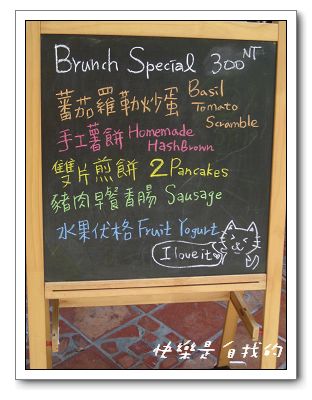 Brunch Special 300 NT
蕃茄羅勒炒蛋 Basil
Tomato
Scramble
手工薯餅 Homemade
HashBrown
雙片煎餅 2 Pancakes
豬肉早餐香腸 Sausage
水果优格 Fruit Yogurt
I love it
快樂是自找的